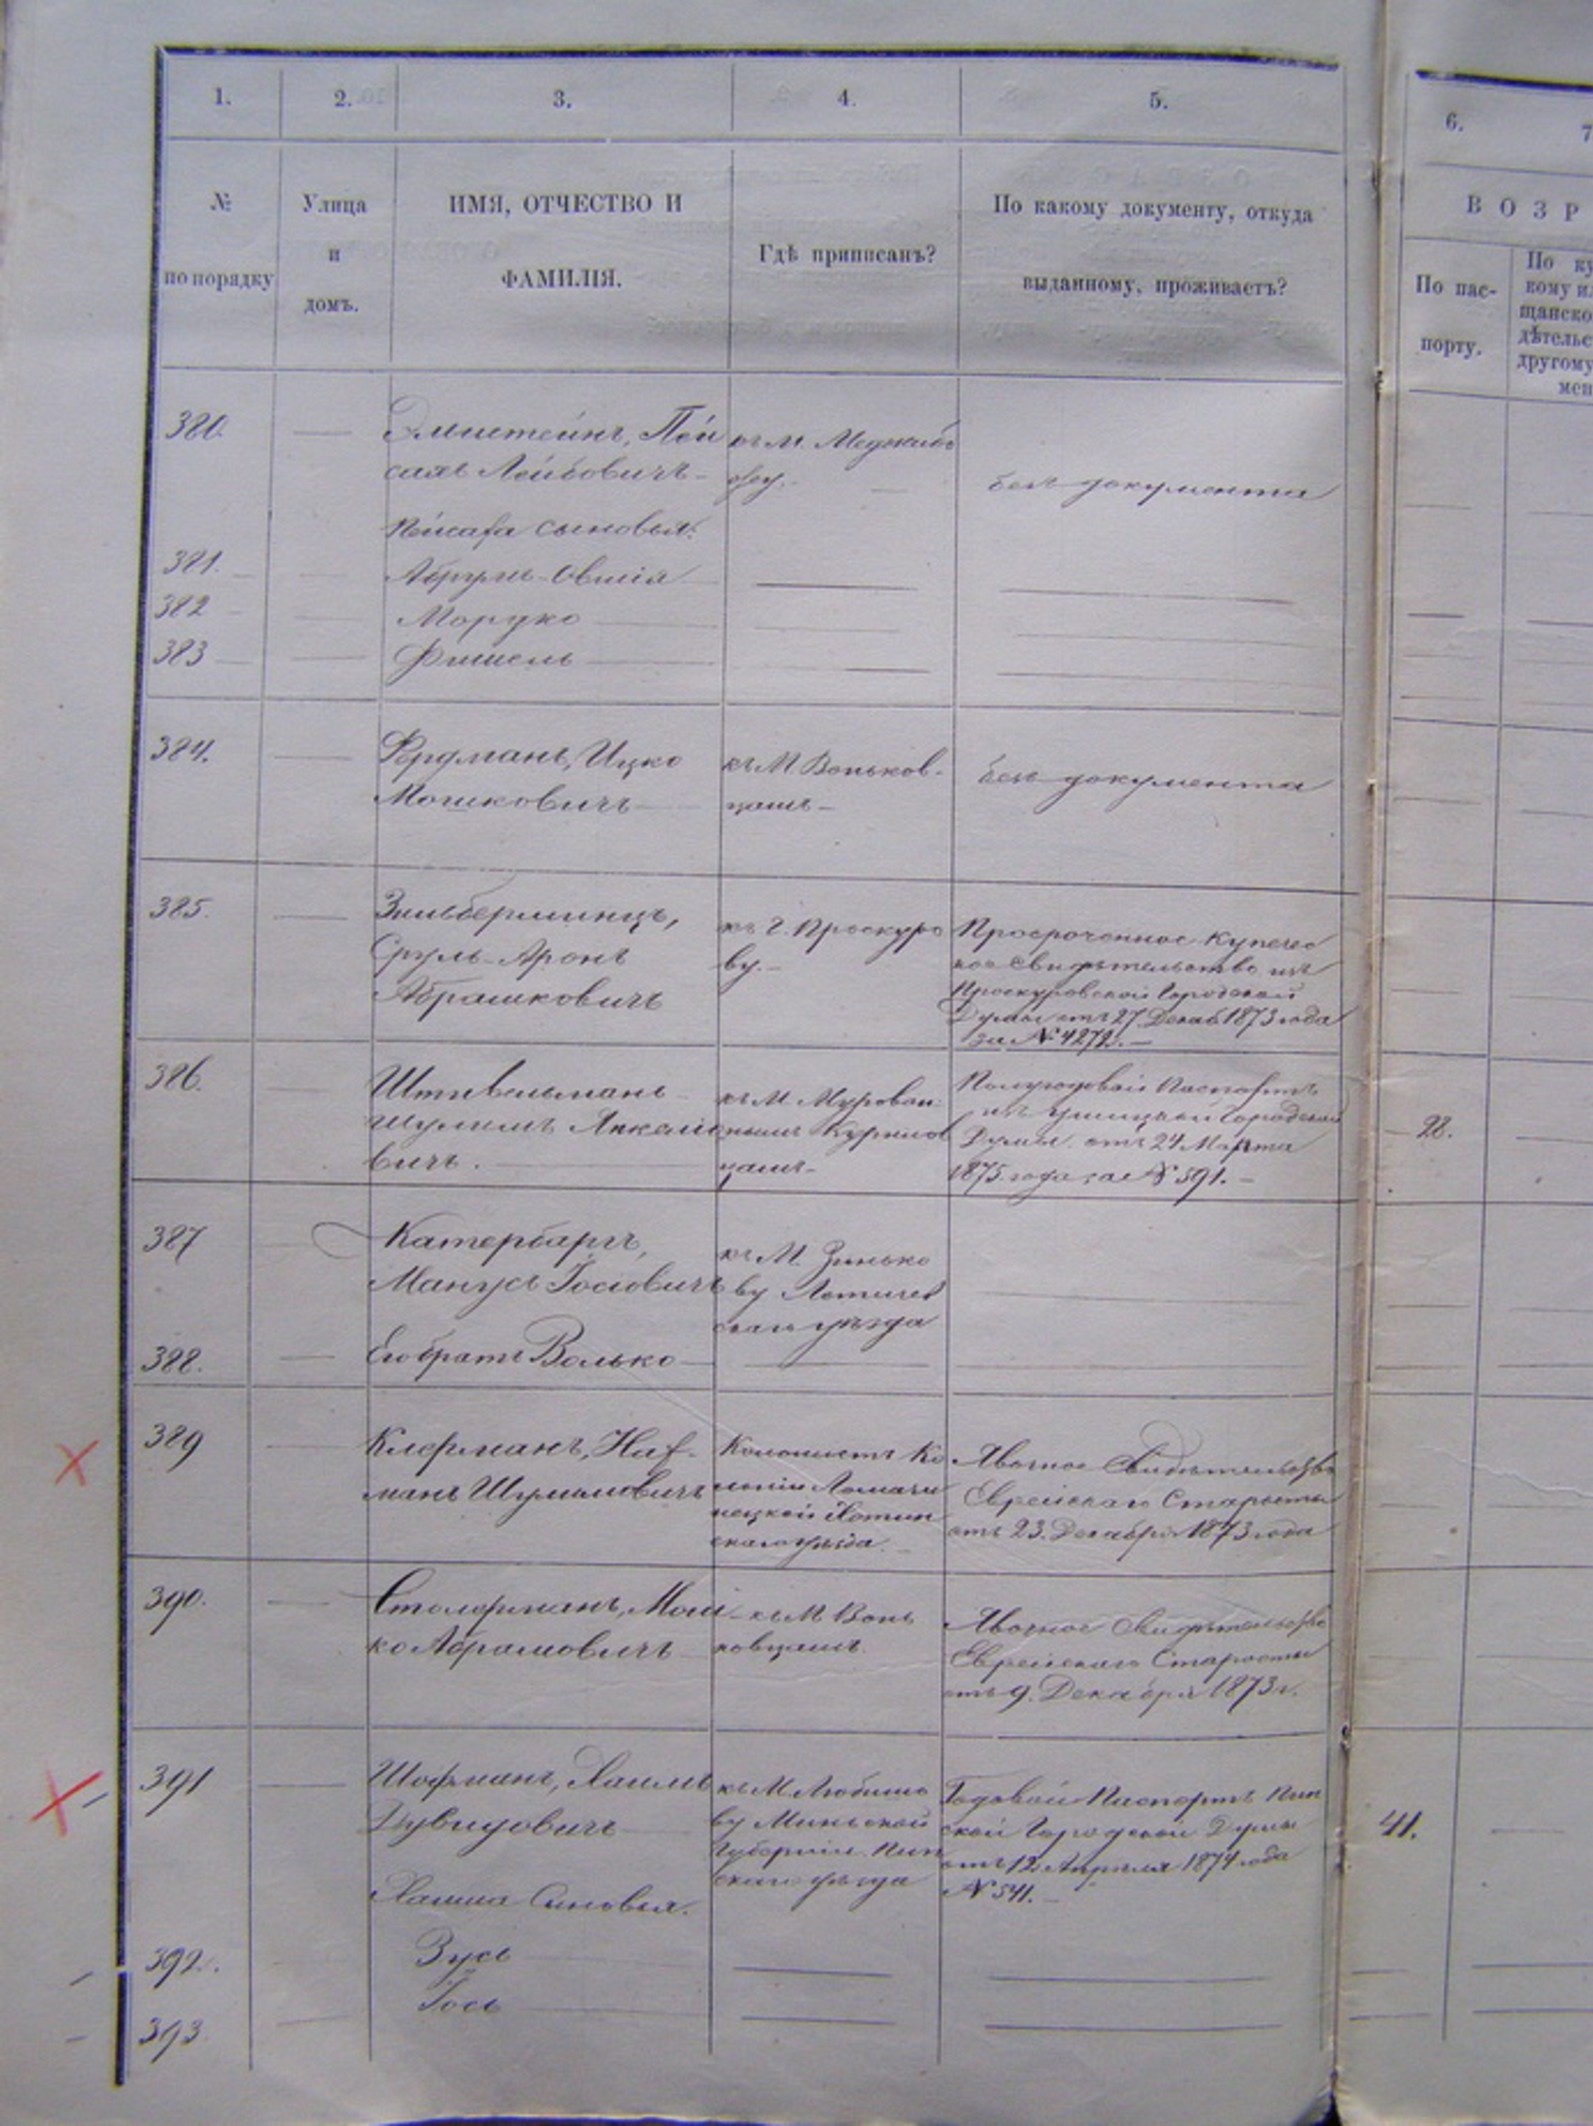 1. 2. 3. 4. 5. 6. 7
№ по порядку
Улица и домъ.
ИМЯ, ОТЧЕСТВО И
ФАМИЛІЯ.
Гдѣ приписанъ?
По какому документу, откуда
выданному, проживаетъ?
ВОЗР
По пас-
порту.
По ку
кому ил
щанско
дѣтельс
другому
мен
380.
Эпштейнъ, Пей
сахъ Лейбовичъ
къ М. Меджибо
жу.
безъ документа
Пейсаха сыновья:
381.
Абрумъ-Овшія
382
Мордко
383
Фишель
384.
Фердманъ, Ицко
Мошковичъ
къ М. Воньков-
цамъ
безъ документа
385.
Зильберминцъ,
Сруль-Аронъ
Абрашковичъ
къ г. Проскуро
ву.
Просроченное Купечес
кое Свидѣтельство изъ
Проскуровской Городской
Думы отъ 27 Декаб. 1873 года
за № 4272.
386.
Штивельманъ
Шулимъ Янкелио
вичъ.
къ М. Мурован:
нымъ Курилов
цамъ
Полугодовой Паспортъ
изъ Ушицкой Городской
Думы отъ 24 Марта
1875 года за № 591.
28.
387
Катербаргъ,
Манусъ Іосіовичъ
къ М. Зинько
ву Летичев
скаго уѣзда
388.
Его братъ Волько
389
Клерманъ, Наф-
манъ Шулимовичъ
Колонистъ Ко
лоніи Ломачи
нецкой Хотин
скаго уѣзда.
Явочное Свидѣтельство
Еврейскаго Старосты
отъ 23. Декабря 1873 года
390.
Столярманъ, Мош
ко Абрамовичъ
къ М. Вонь
ковцамъ.
Явочное Свидѣтельство
Еврейскаго Старосты
отъ 9. Декабря 1873 г.
391
Шофманъ, Хаимъ
Дувидовичъ
къ М. Любишо
ву Минской
Губерніи Пин
скаго уѣзда
Годовой Паспортъ Пин
ской Городской Думы
отъ 12 Апрѣля 1874 года
№ 541.
41.
Хаима Сыновья.
392.
Зусь
393
Іось